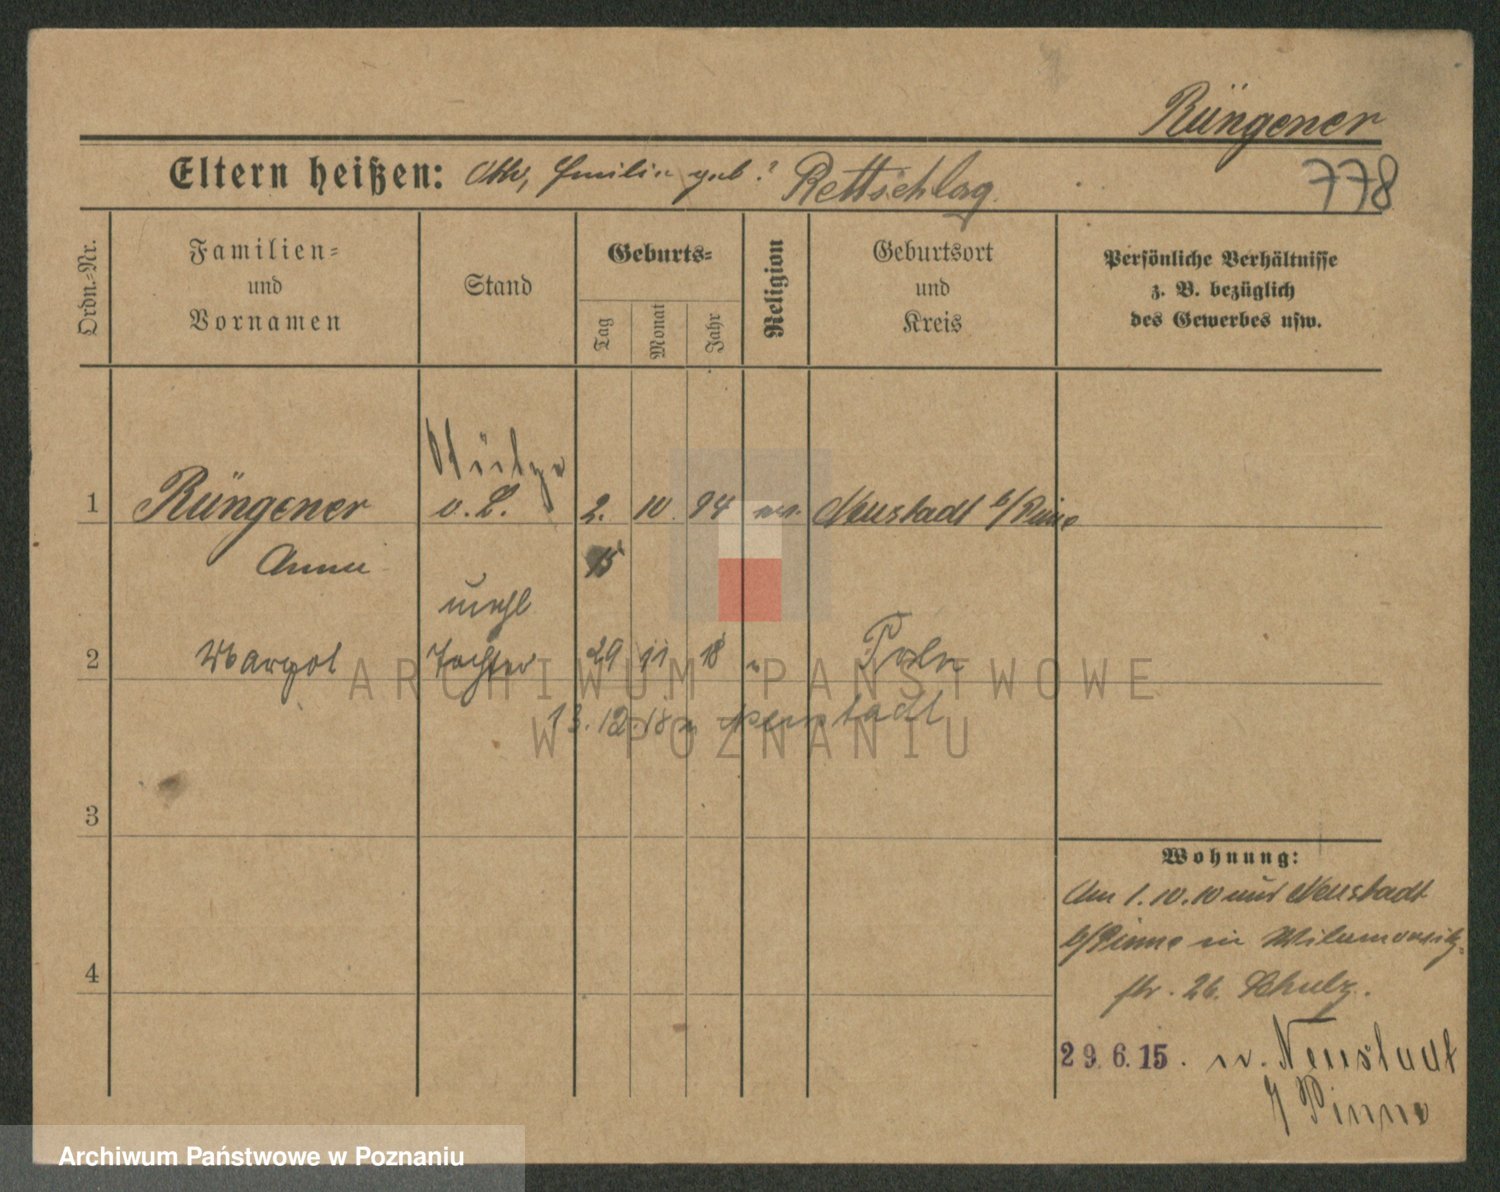 Rüngener
Eltern heißen: Otto, Emilie geb. Rettschlag
778
Ordn.-Nr.
Familien-
und
Vornamen
Stand
Geburts-
Tag
Monat
Jahr
Religion
Geburtsort
und
Kreis
Persönliche Verhältnisse
z. B. bezüglich
des Gewerbes usw.
Stütze
1 Rüngener v. L. 2. 10. 94 ev. Neustadt b/Pinne
Anna 15
unehl
2 Margot Tochter 29 11 18 " Posen
13.12.18 n Neustadt
3
4
Wohnung:
Am 1.10.10 aus Neustadt
b/Pinne in Wilamowitz-
str. 26. Schulz.
29.6.15. n. Neustadt
Pinne
ARCHIWUM PAŃSTWOWE
W POZNANIU
Archiwum Państwowe w Poznaniu